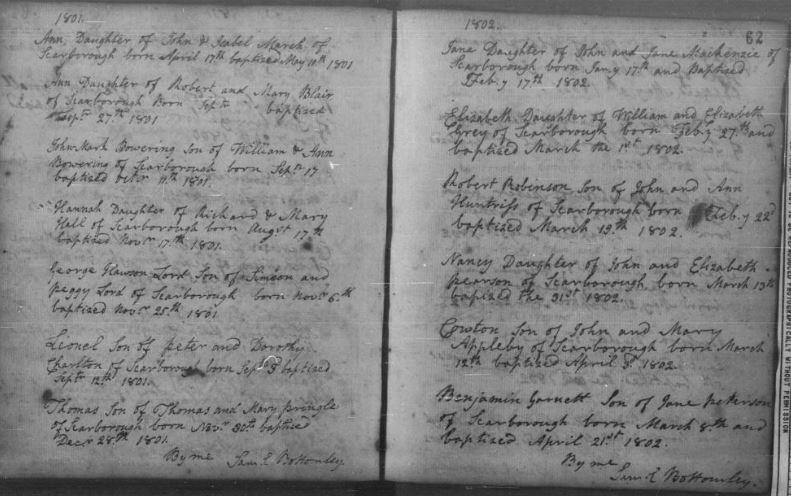 1801.
Ann, Daughter of John & Isabel March of
Scarborough born April 17th baptized May 10th 1801
Ann Daughter of Robert and Mary Blair
of Scarborough Born Septr baptized
Septr 27th 1801
John Mark Bowering Son of William & Ann
Bowering of Scarborough born Septr 17
baptized Octr 11th 1801
Hannah Daughter of Richard & Mary
Hall of Scarborough born August 17th
baptized Novr 17th 1801.
George Hawson Lord Son of Simeon and
peggy Lord of Scarborough born Novr 6th
baptized Novr 25th 1801
Leonel Son of peter and Dorothy
Charlton of Scarborough born Septr 3 baptized
Septr 12th 1801.
Thomas Son of Thomas and Mary pringle
of Scarborough born Novr 30th baptized
Decr 28th 1801.
By me Saml Bottomley
1802.
62
Jane Daughter of John and Jane Mackenzie of
Scarborough born Jany 17th and Baptized
Feb.y 17th 1802.
Elizabeth Daughter of William and Elizabeth
Grey of Scarborough born Feby 27th and
baptized March the 1st 1802.
Robert Robinson Son of John and Ann
Huntriss of Scarborough born Feb.y 22d
baptized March 19th 1802.
Nancy Daughter of John and Elizabeth
pearson of Scarborough born March 13th
baptized the 31st 1802.
Cowton Son of John and Mary
Appleby of Scarborough born March
12th baptized April 8. 1802
Benjamin Garnett Son of Jane peterson
of Scarborough born March 8th and
baptized April 21st 1802.
By me
Saml Bottomley.
PHOTOGRAPHICALLY WITHOUT PERMISSION